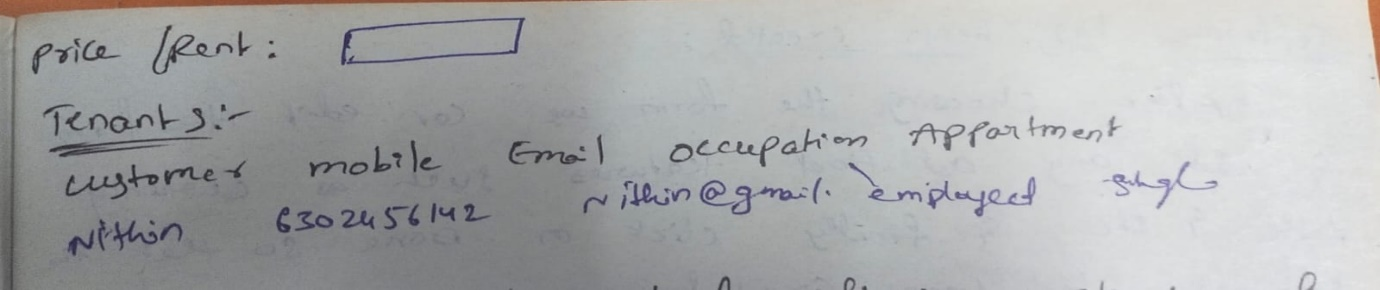 Price / Rent :
Tenants :-
customer mobile Email occupation Appartment
Nithin 6302456142 Nithin@gmail. employeed single